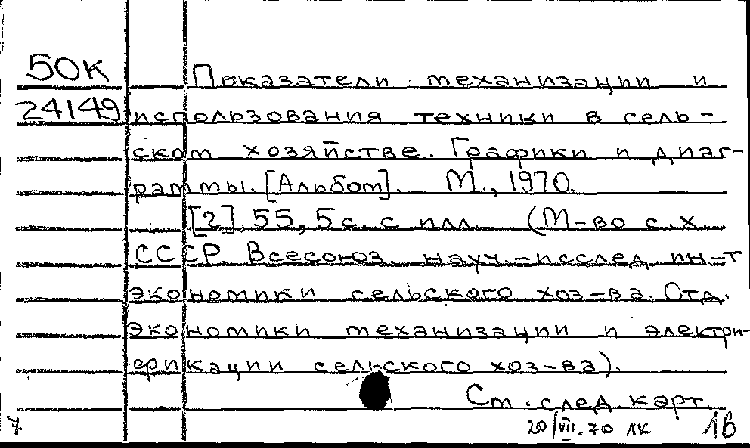 50К Показатели механизации и
24149 использования техники в сель-
ском хозяйстве. Графики и диаг-
раммы. [Альбом]. М., 1970.
[2], 55, 5 с. с илл. (М-во с. х.
СССР. Всесоюз. науч.-исслед. ин-т
экономики сельского хоз-ва. Отд.
экономики механизации и электри-
фикации сельского хоз-ва).
См. след. карт.
20/VII-70 ЛК 1В